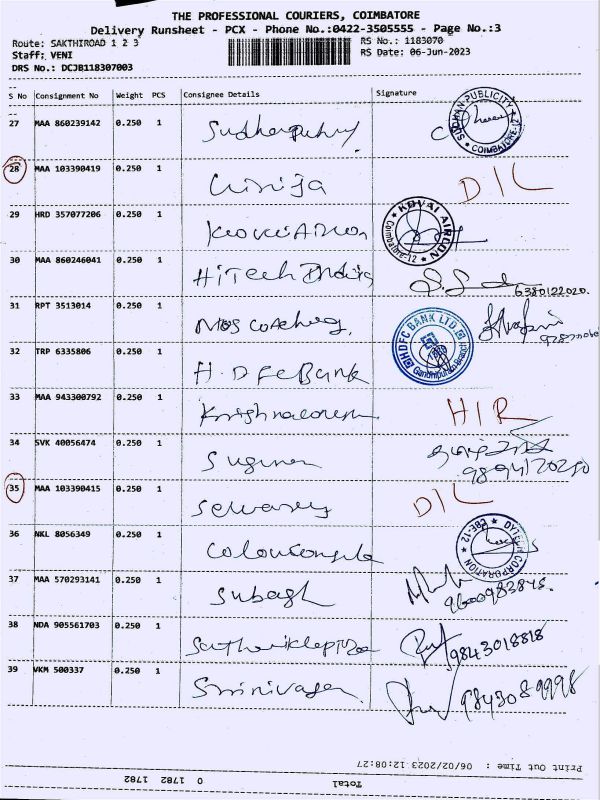 THE PROFESSIONAL COURIERS, COIMBATORE
Delivery Runsheet - PCX - Phone No.:0422-3505555 - Page No.:3
Route: SAKTHIROAD 1 2 3 RS No.: 1183070
Staff: VENI RS Date: 06-Jun-2023
DRS No.: DCJB118307003
S No Consignment No Weight PCS Consignee Details Signature
27 MAA 860239142 0.250 1 SUDHAN PUBLICITY COIMBATORE-12
28 MAA 103390419 0.250 1 Girija D/L
29 HRD 357077206 0.250 1 KOVAI AIRCON Coimbatore-12
30 MAA 860246041 0.250 1 HiTech 6380122020.
31 RPT 3513014 0.250 1
32 TRP 6335806 0.250 1 H.DFC Bank HDFC BANK LTD. Gandhipuram Branch
33 MAA 943300792 0.250 1 H/R
34 SVK 40056474 0.250 1
35 MAA 103390415 0.250 1 D/L
36 NKL 8056349 0.250 1 CORPORATION CBE-12
37 MAA 570293141 0.250 1 Subash 9600983845.
38 NDA 905561703 0.250 1 9843018818
39 VKM 500337 0.250 1 Srinivasan 9843089998
Print Out Time : 06/02/2023 12:08:27
Total 1782 1782 0